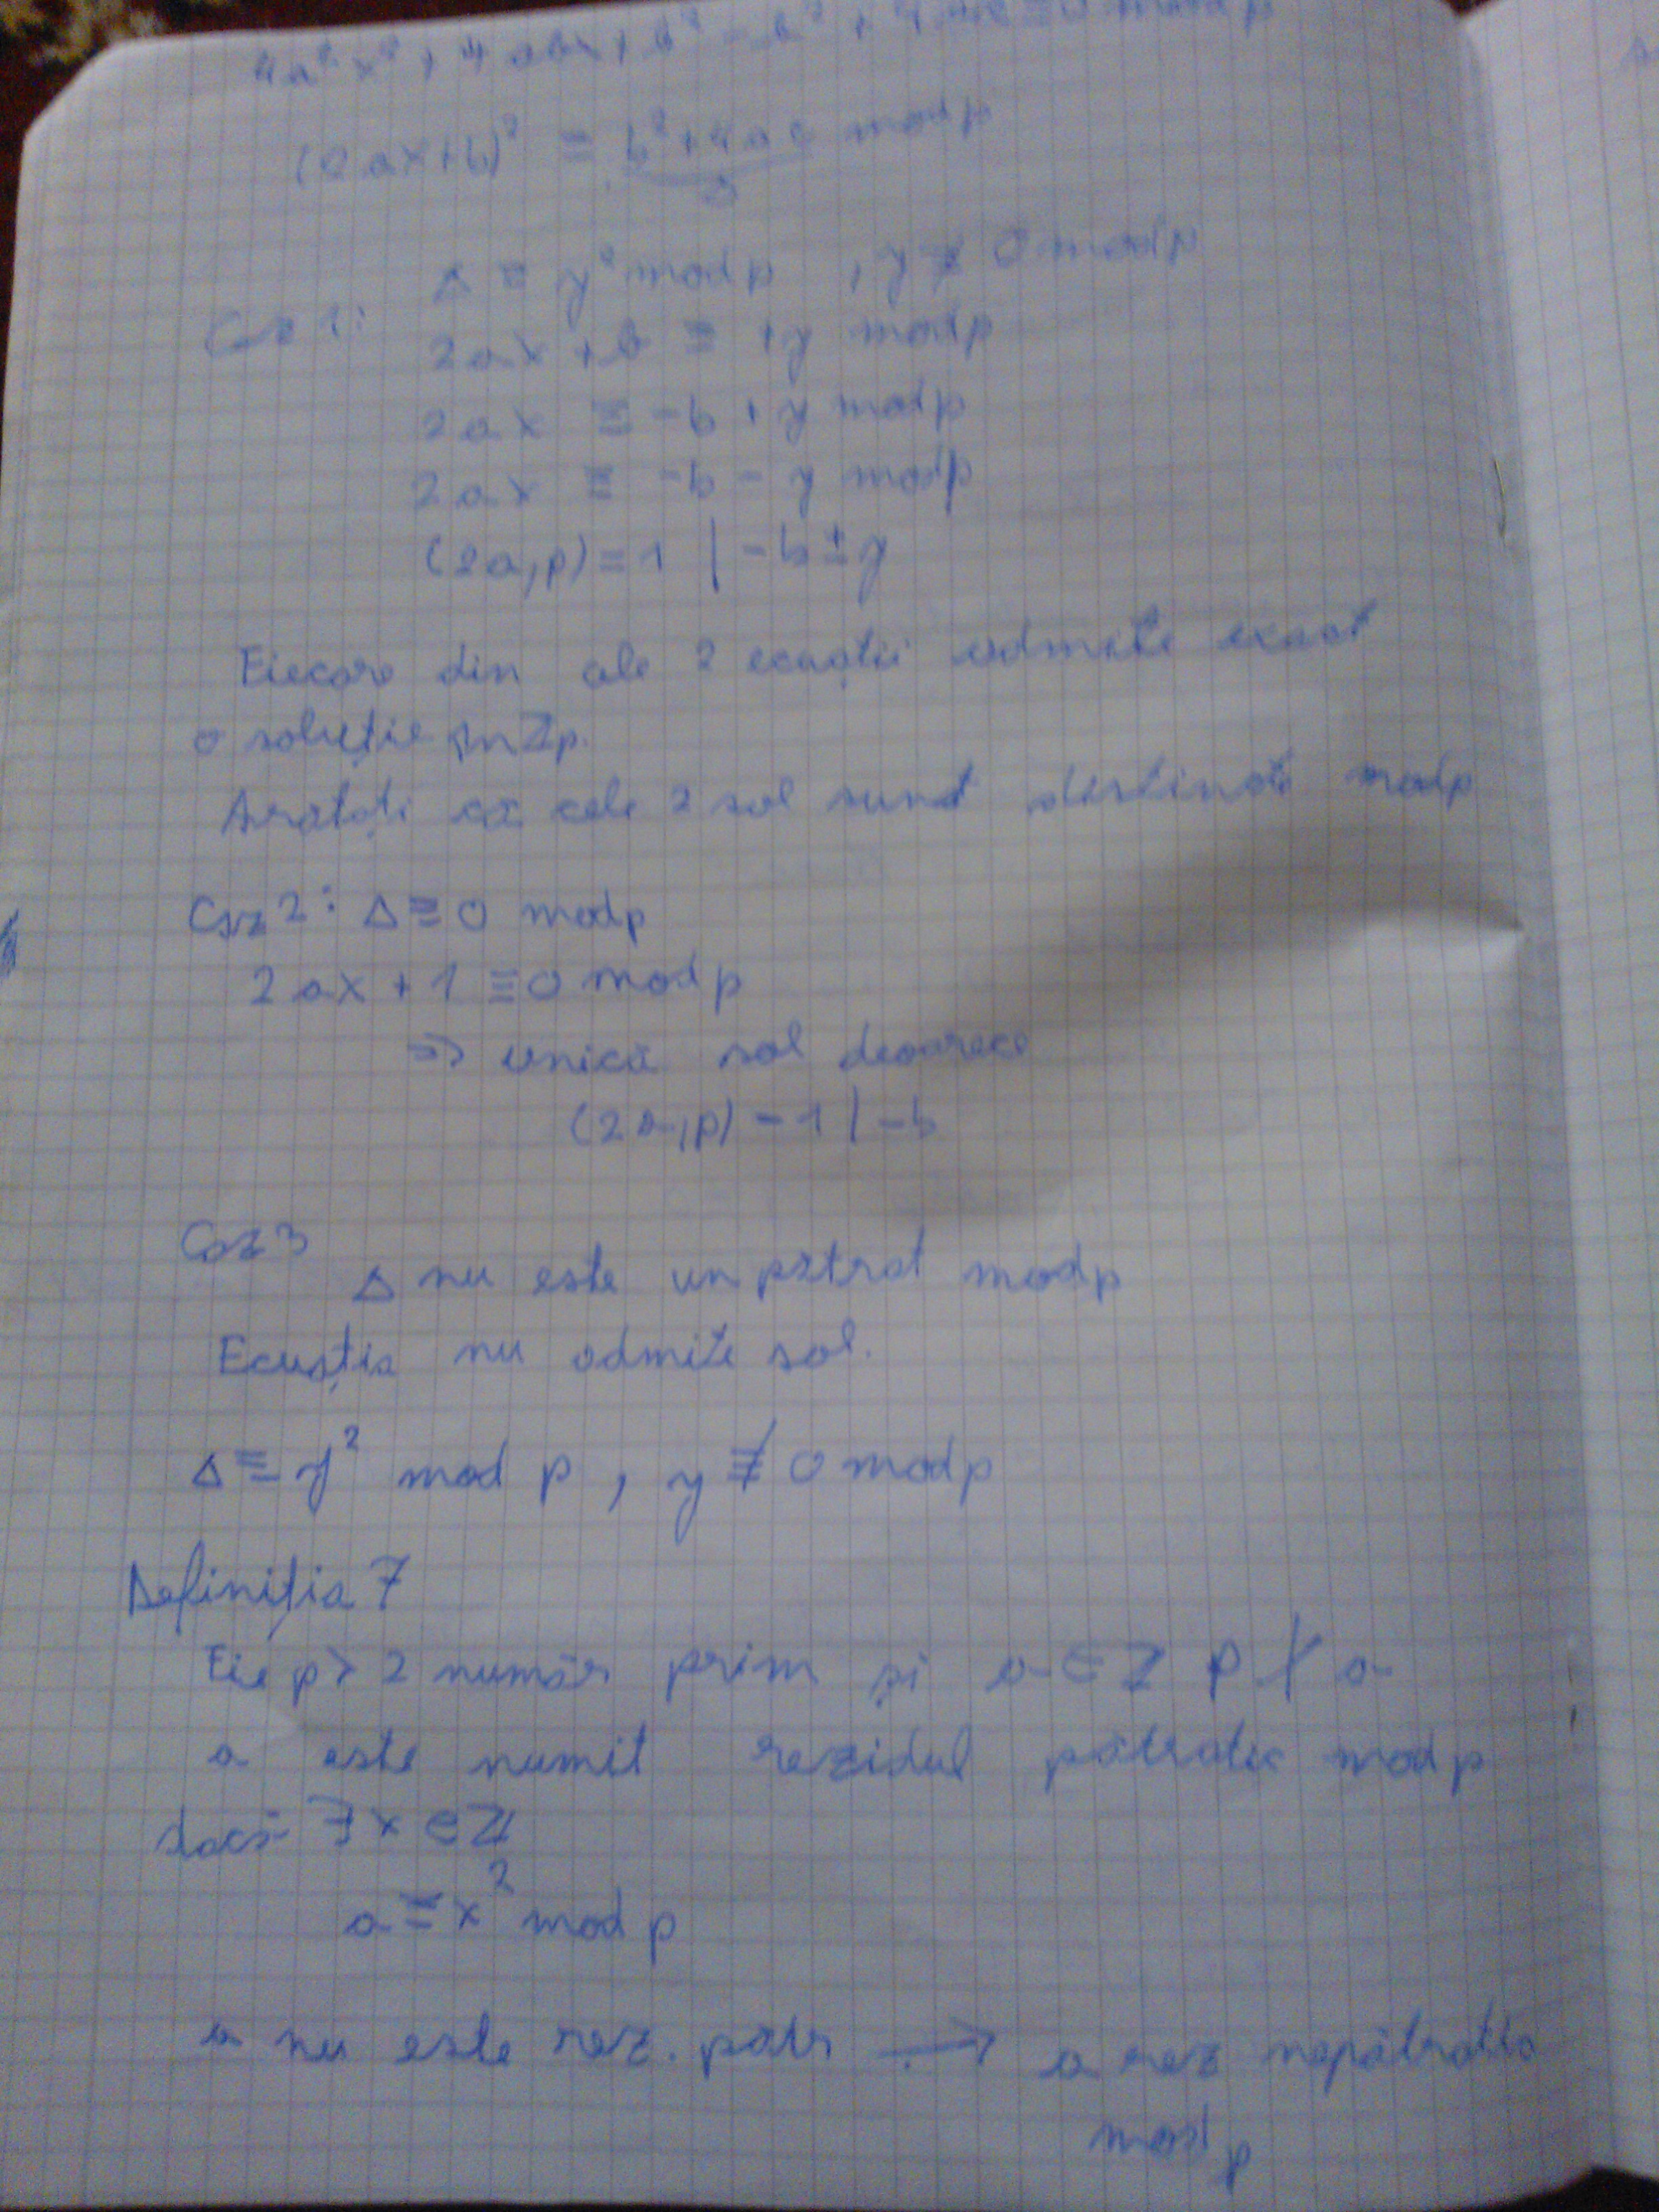 4a²x² + 4abx + b² - b² + 4ac ≡ 0 mod p
(2ax+b)² ≡ b²+4ac mod p
Δ
Caz 1: Δ ≡ y² mod p , y ≢ 0 mod p
2ax + b ≡ ±y mod p
2ax ≡ -b + y mod p
2ax ≡ -b - y mod p
(2a,p) = 1 | -b ± y
Fiecare din ale 2 ecuații admite exact
o soluție în Zp.
Arătați că cele 2 sol sunt distincte mod p
Caz 2: Δ ≡ 0 mod p
2ax + 1 ≡ 0 mod p
=> unică sol deoarece
(2a,p) = 1 | -b
Caz 3
Δ nu este un pătrat mod p
Ecuația nu admite sol.
Δ ≡ y² mod p , y ≢ 0 mod p
Definiția 7
Fie p > 2 număr prim și a ∈ Z p ∤ a
a este numit rezidul pătratic mod p
dacă ∃ x ∈ Z
a ≡ x² mod p
a nu este rez. pătr → a rez nepătratic
mod p